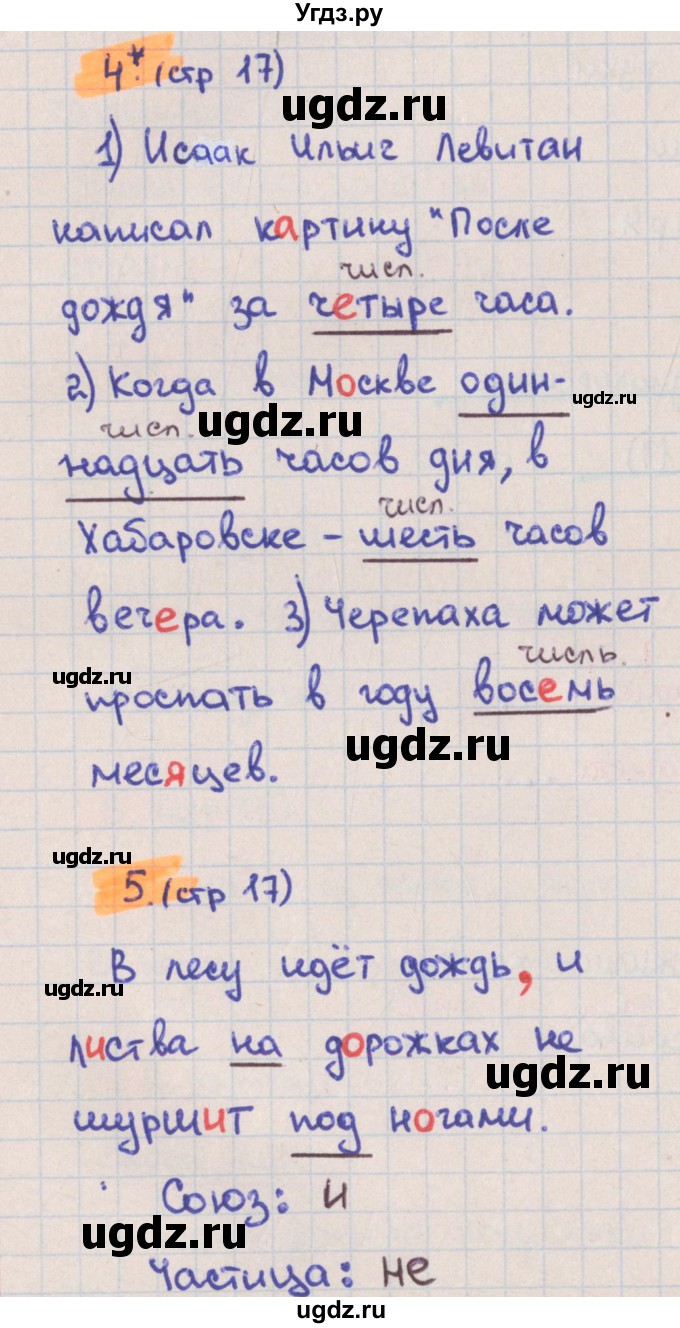 Угдз.ру
4*. (стр 17)
ugdz.ru
1) Исаак Ильич Левитан
написал картину "После
числ.
дождя" за четыре часа.
2) Когда в Москве один-
ugdz.ru
числ. ugdz.ru
надцать часов дня, в
числ.
Хабаровске - шесть часов
вечера. 3) Черепаха может
числь.
ugdz.ru
проспать в году восемь
ugdz.ru
месяцев.
ugdz.ru
5. (стр 17)
В лесу идёт дождь, и
ugdz.ru
листва на дорожках не
ugdz.ru
шуршит под ногами.
Союз: и
ugdz.ru
Частица: не
ugdz.ru